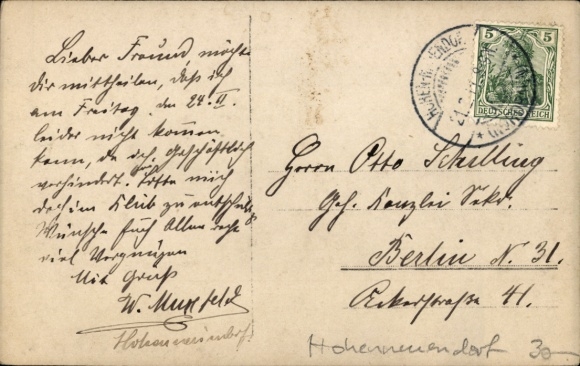 Lieber Freund, möchte
dir mittheilen, daß ich
am Freitag, den 24. II.
leider nicht kommen
kann, da ich geschäftlich
verhindert. Bitte mich
doch im Klub zu entschuld.
Wünsche Euch Allen recht
viel Vergnügen
Mit Gruß
W.
Hohenneuendorf.
5 5
DEUTSCHES REICH
HOHEN NEUENDORF
Herrn Otto Schilling
Geh. Kanzlei Sekr.
Berlin N. 31.
Ackerstraße 41.
Hohenneuendorf 30